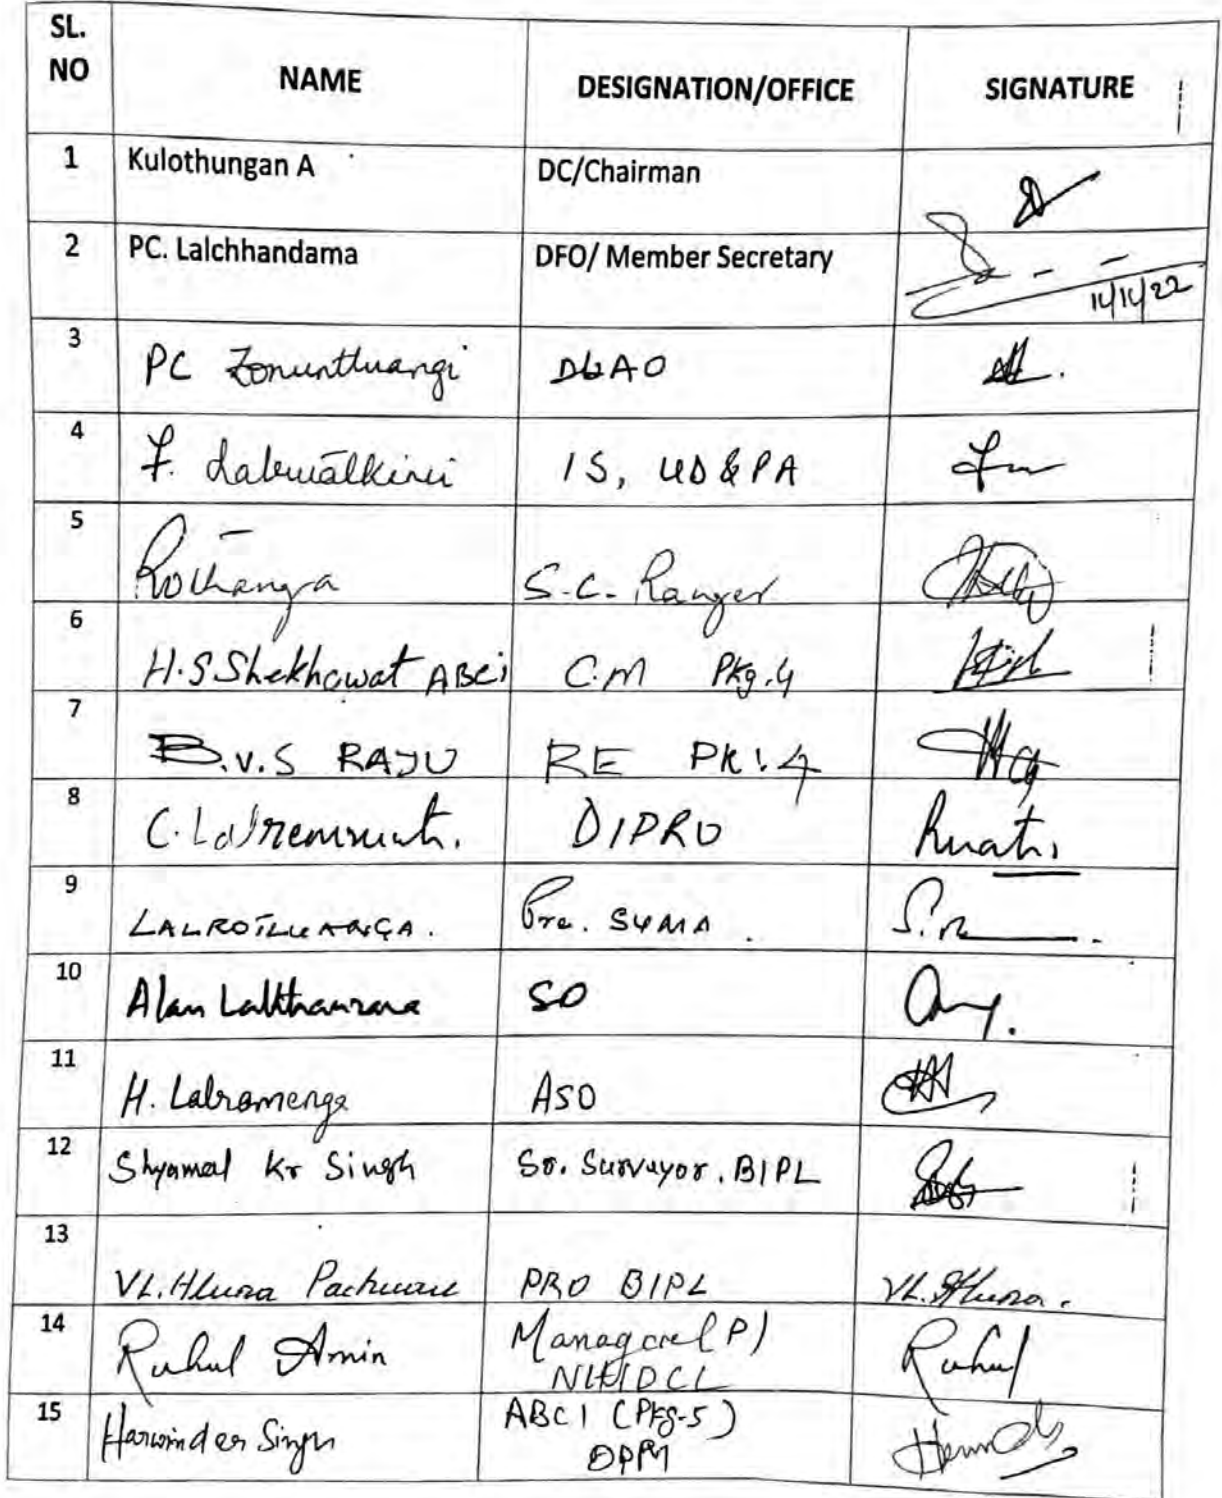 SL. NO NAME DESIGNATION/OFFICE SIGNATURE
1 Kulothungan A DC/Chairman
2 PC. Lalchhandama DFO/ Member Secretary 11/11/22
3 PC Zonuntluangi DLAO
4 F. Lalruatkimi IS, UD & PA
5 Rothanga S.C. Ranger
6 H.S Shekhawat ABCi C.M Pkg.4
7 B.V.S RAJU RE PK!4
8 C. DIPRO Ruati
9 SYMA
10 Alan SO
11 H. Lalramenga ASO
12 Shyamal Kr Singh Sr. Surveyor. BIPL
13 VL. Hluna Pachuau PRO BIPL VL. Hluna.
14 Ruhul Amin Manager (P) Ruhul
NHIDCL
15 Harwinder Singh ABCI (Pkg-5)
DPM